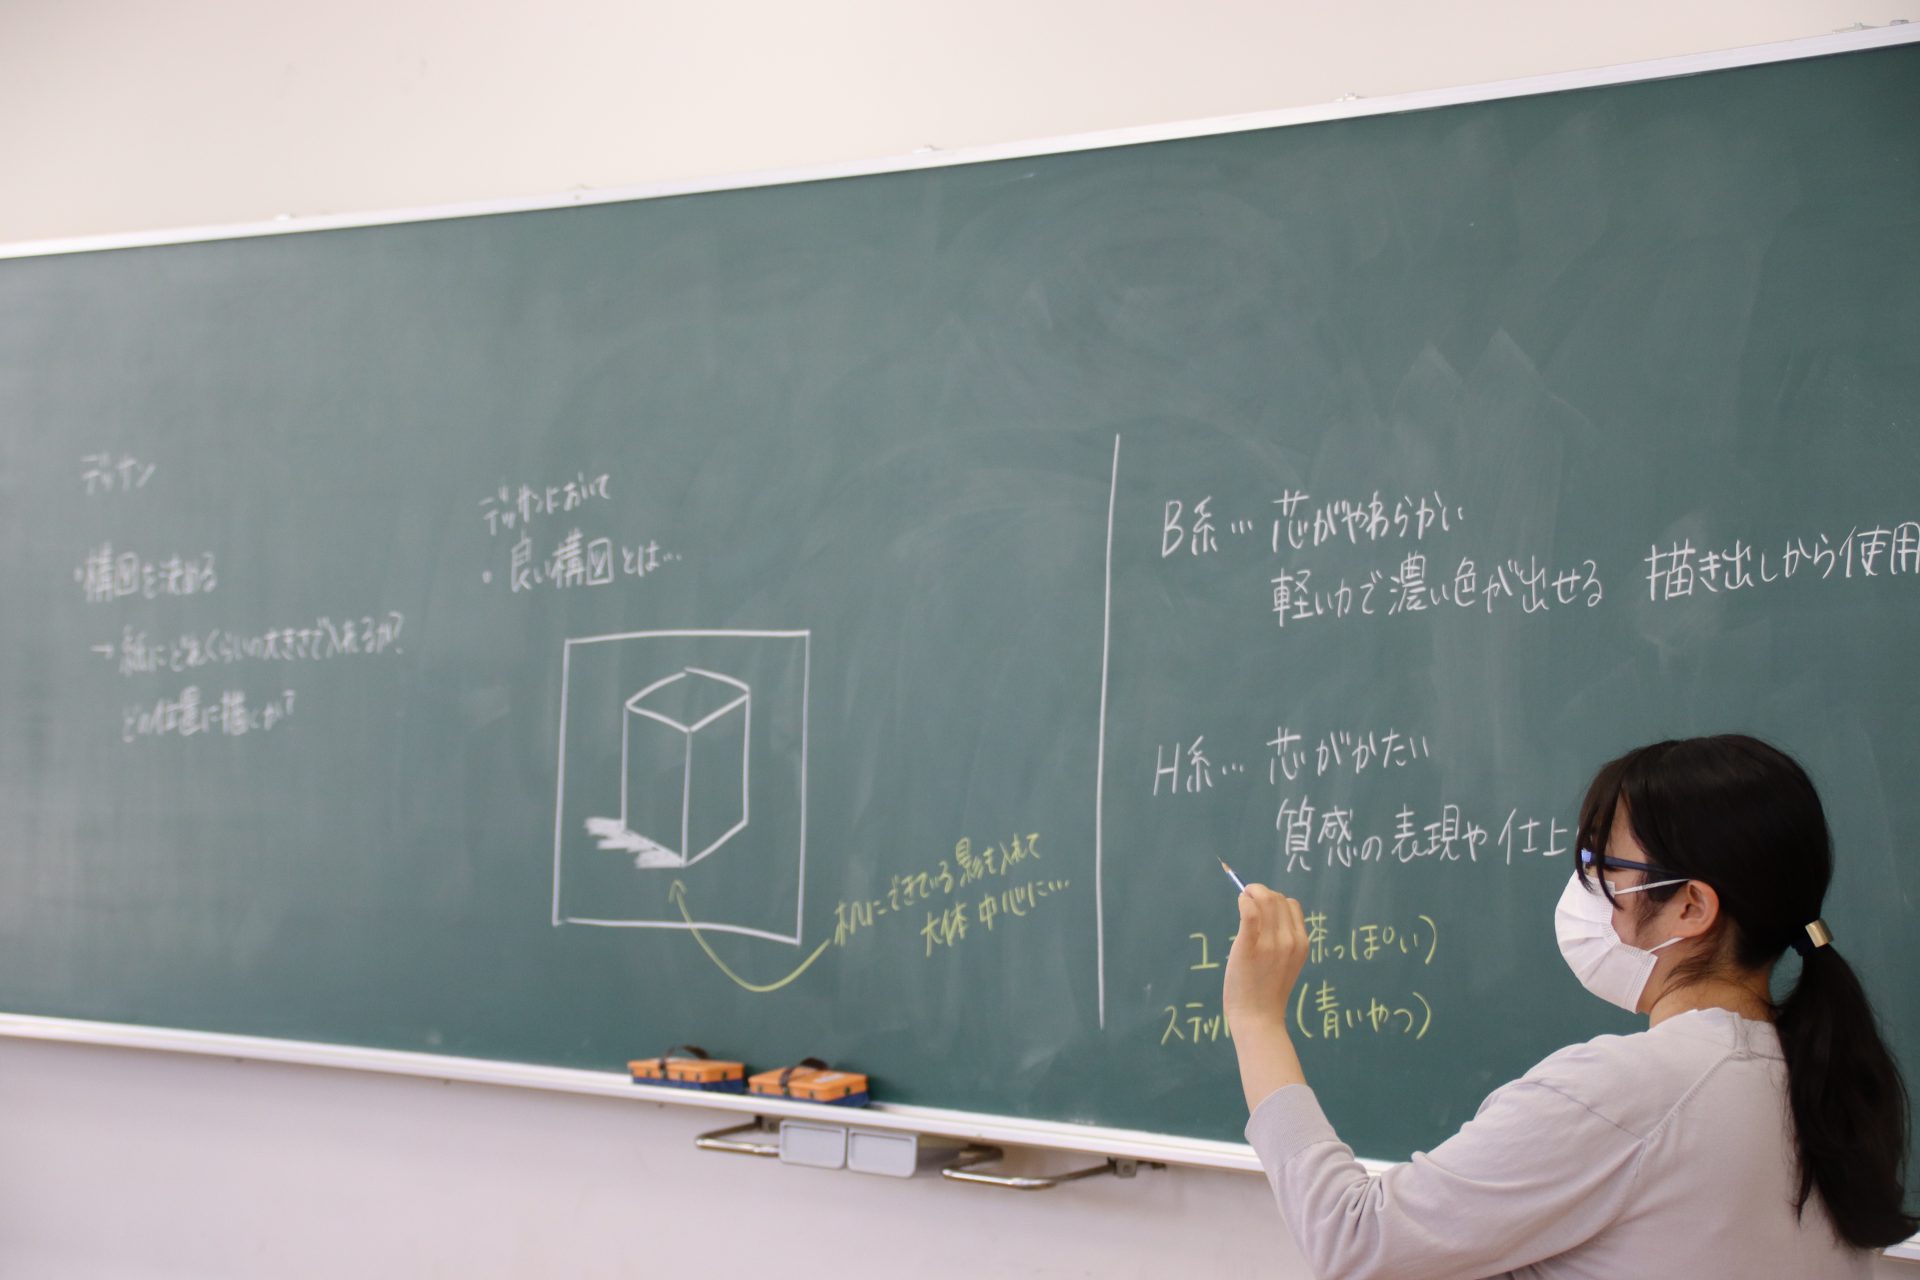 デッサン
・構図を決める
→紙にどれくらいの大きさで入れるか?
どの位置に描くか?
デッサンにおいて
・良い構図とは…
机にできている影も入れて
大体中心に…
B系… 芯がやわらかい
軽い力で濃い色が出せる 描き出しから使用
H系… 芯がかたい
質感の表現や仕上
ユ 茶っぽい)
ステッ (青いやつ)